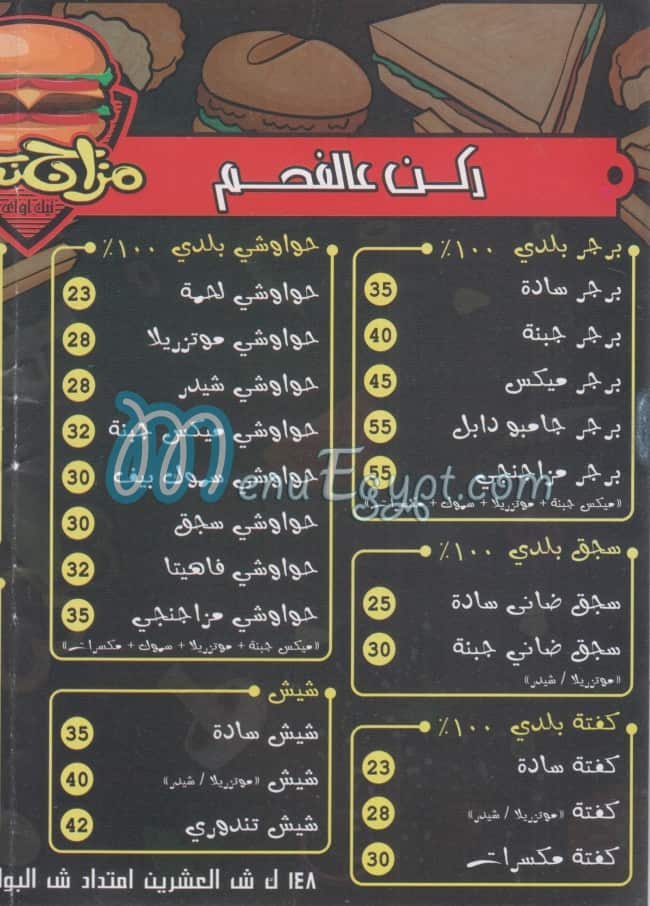 مزاجن
تيك اواي
ركن عالفحم
برجر بلدي ١٠٠٪
برجر سادة 35
برجر جبنة 40
برجر ميكس 45
برجر جامبو دابل 55
برجر مزاجنجي 55
«ميكس جبنة + موتزريلا + سموك + مكسرات»
سجق بلدي ١٠٠٪
سجق ضاني سادة 25
سجق ضاني جبنة 30
«موتزريلا / شيدر»
كفتة بلدي ١٠٠٪
كفتة سادة 23
كفتة «موتزريلا / شيدر» 28
كفتة مكسرات 30
حواوشي بلدي ١٠٠٪
حواوشي لحمة 23
حواوشي موتزريلا 28
حواوشي شيدر 28
حواوشي ميكس جبنة 32
حواوشي سموك بيف 30
حواوشي سجق 30
حواوشي فاهيتا 32
حواوشي مزاجنجي 35
«ميكس جبنة + موتزريلا + سموك + مكسرات»
شيش
شيش سادة 35
شيش «موتزريلا / شيدر» 40
شيش تندوري 42
١٤٨ ك ش العشرين امتداد ش البوا
MenuEgypt.com